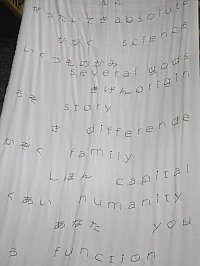 ぜったいてき absolute
かがく science
いくつものかみ
several gods
きげん origin
うそ
story
さ difference
かぞく family
しほん capital
くあい humanity
あなた you
う function